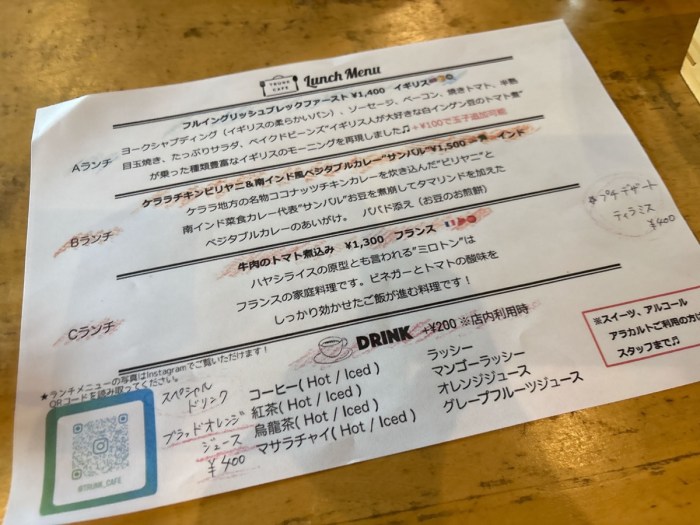 TRUNK CAFE
Lunch Menu
フルイングリッシュブレックファースト ¥1,400 イギリス
ヨークシャプディング（イギリスの柔らかいパン）、ソーセージ、ベーコン、焼きトマト、半熟
目玉焼き、たっぷりサラダ、ベイクドビーンズ"イギリス人が大好きな白インゲン豆のトマト煮"
が乗った種類豊富なイギリスのモーニングを再現しました♫ +¥100で玉子追加可能
Aランチ
ケララチキンビリヤニ＆南インド風ベジタブルカレー"サンバル"¥1,500 インド
ケララ地方の名物ココナッツチキンカレーを炊き込んだ"ビリヤニ"と
南インド菜食カレー代表"サンバル"お豆を煮崩してタマリンドを加えた
ベジタブルカレーのあいがけ。 パパド添え（お豆のお煎餅）
Bランチ
牛肉のトマト煮込み ¥1,300 フランス
ハヤシライスの原型とも言われる"ミロトン"は
フランスの家庭料理です。ビネガーとトマトの酸味を
しっかり効かせたご飯が進む料理です！
Cランチ
プチデザート
ティラミス
¥400
※スイーツ、アルコール
アラカルトご利用の方は
スタッフまで♫
DRINK +¥200 ※店内利用時
コーヒー( Hot / Iced )
紅茶( Hot / Iced )
烏龍茶( Hot / Iced )
マサラチャイ( Hot / Iced )
ラッシー
マンゴーラッシー
オレンジジュース
グレープフルーツジュース
★ランチメニューの写真はInstagramでご覧いただけます！
QRコードを読み取ってください。
スペシャル
ドリンク
ブラッドオレンジ
ジュース
¥400
@TRUNK_CAFE